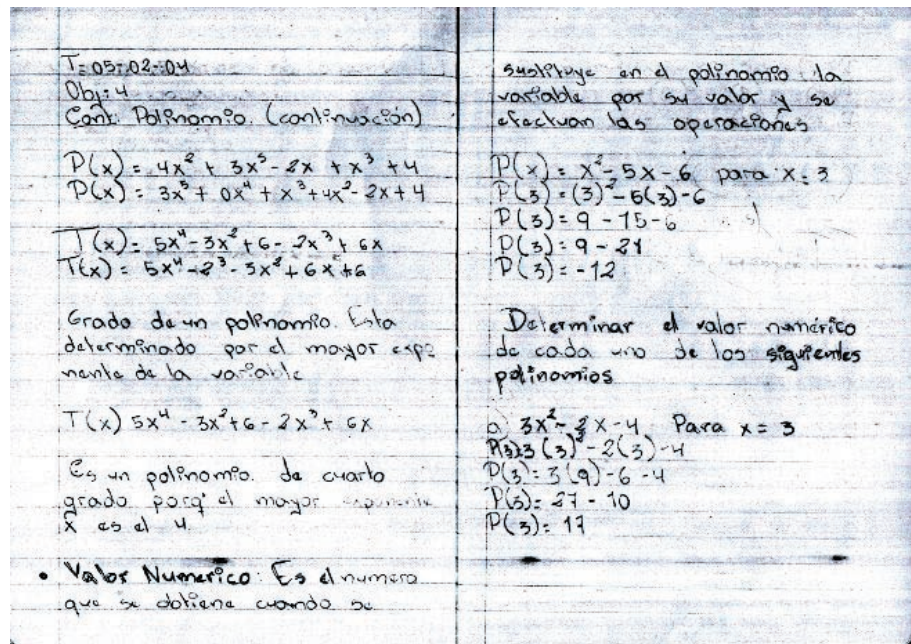 T=05-02-04
Obj: 4
Cont: Polinomio. (continuación)
P(x) = 4x² + 3x⁵ - 2x + x³ + 4
P(x) = 3x⁵ + 0x⁴ + x³ + 4x² - 2x + 4
T(x) = 5x⁴ - 3x² + 6 - 2x³ + 6x
T(x) = 5x⁴ - 2³ - 3x² + 6x + 6
Grado de un polinomio. Esta
determinado por el mayor expo
nente de la variable
T(x) 5x⁴ - 3x² + 6 - 2x³ + 6x
Es un polinomio. de cuarto
grado porq' el mayor exponente
x es el 4.
• Valor Numerico: Es el numero
que se obtiene cuando se
sustituye en el polinomio la
variable por su valor y se
efectuan las operaciones
P(x) = x² - 5x - 6 para x = 3
P(3) = (3)² - 5(3) - 6
P(3) = 9 - 15 - 6
P(3) = 9 - 21
P(3) = -12
Determinar el valor numérico
de cada uno de los siguientes
polinomios
a) 3x² - 2x - 4 Para x = 3
P(3) = 3(3)² - 2(3) - 4
P(3) = 3(9) - 6 - 4
P(3) = 27 - 10
P(3) = 17